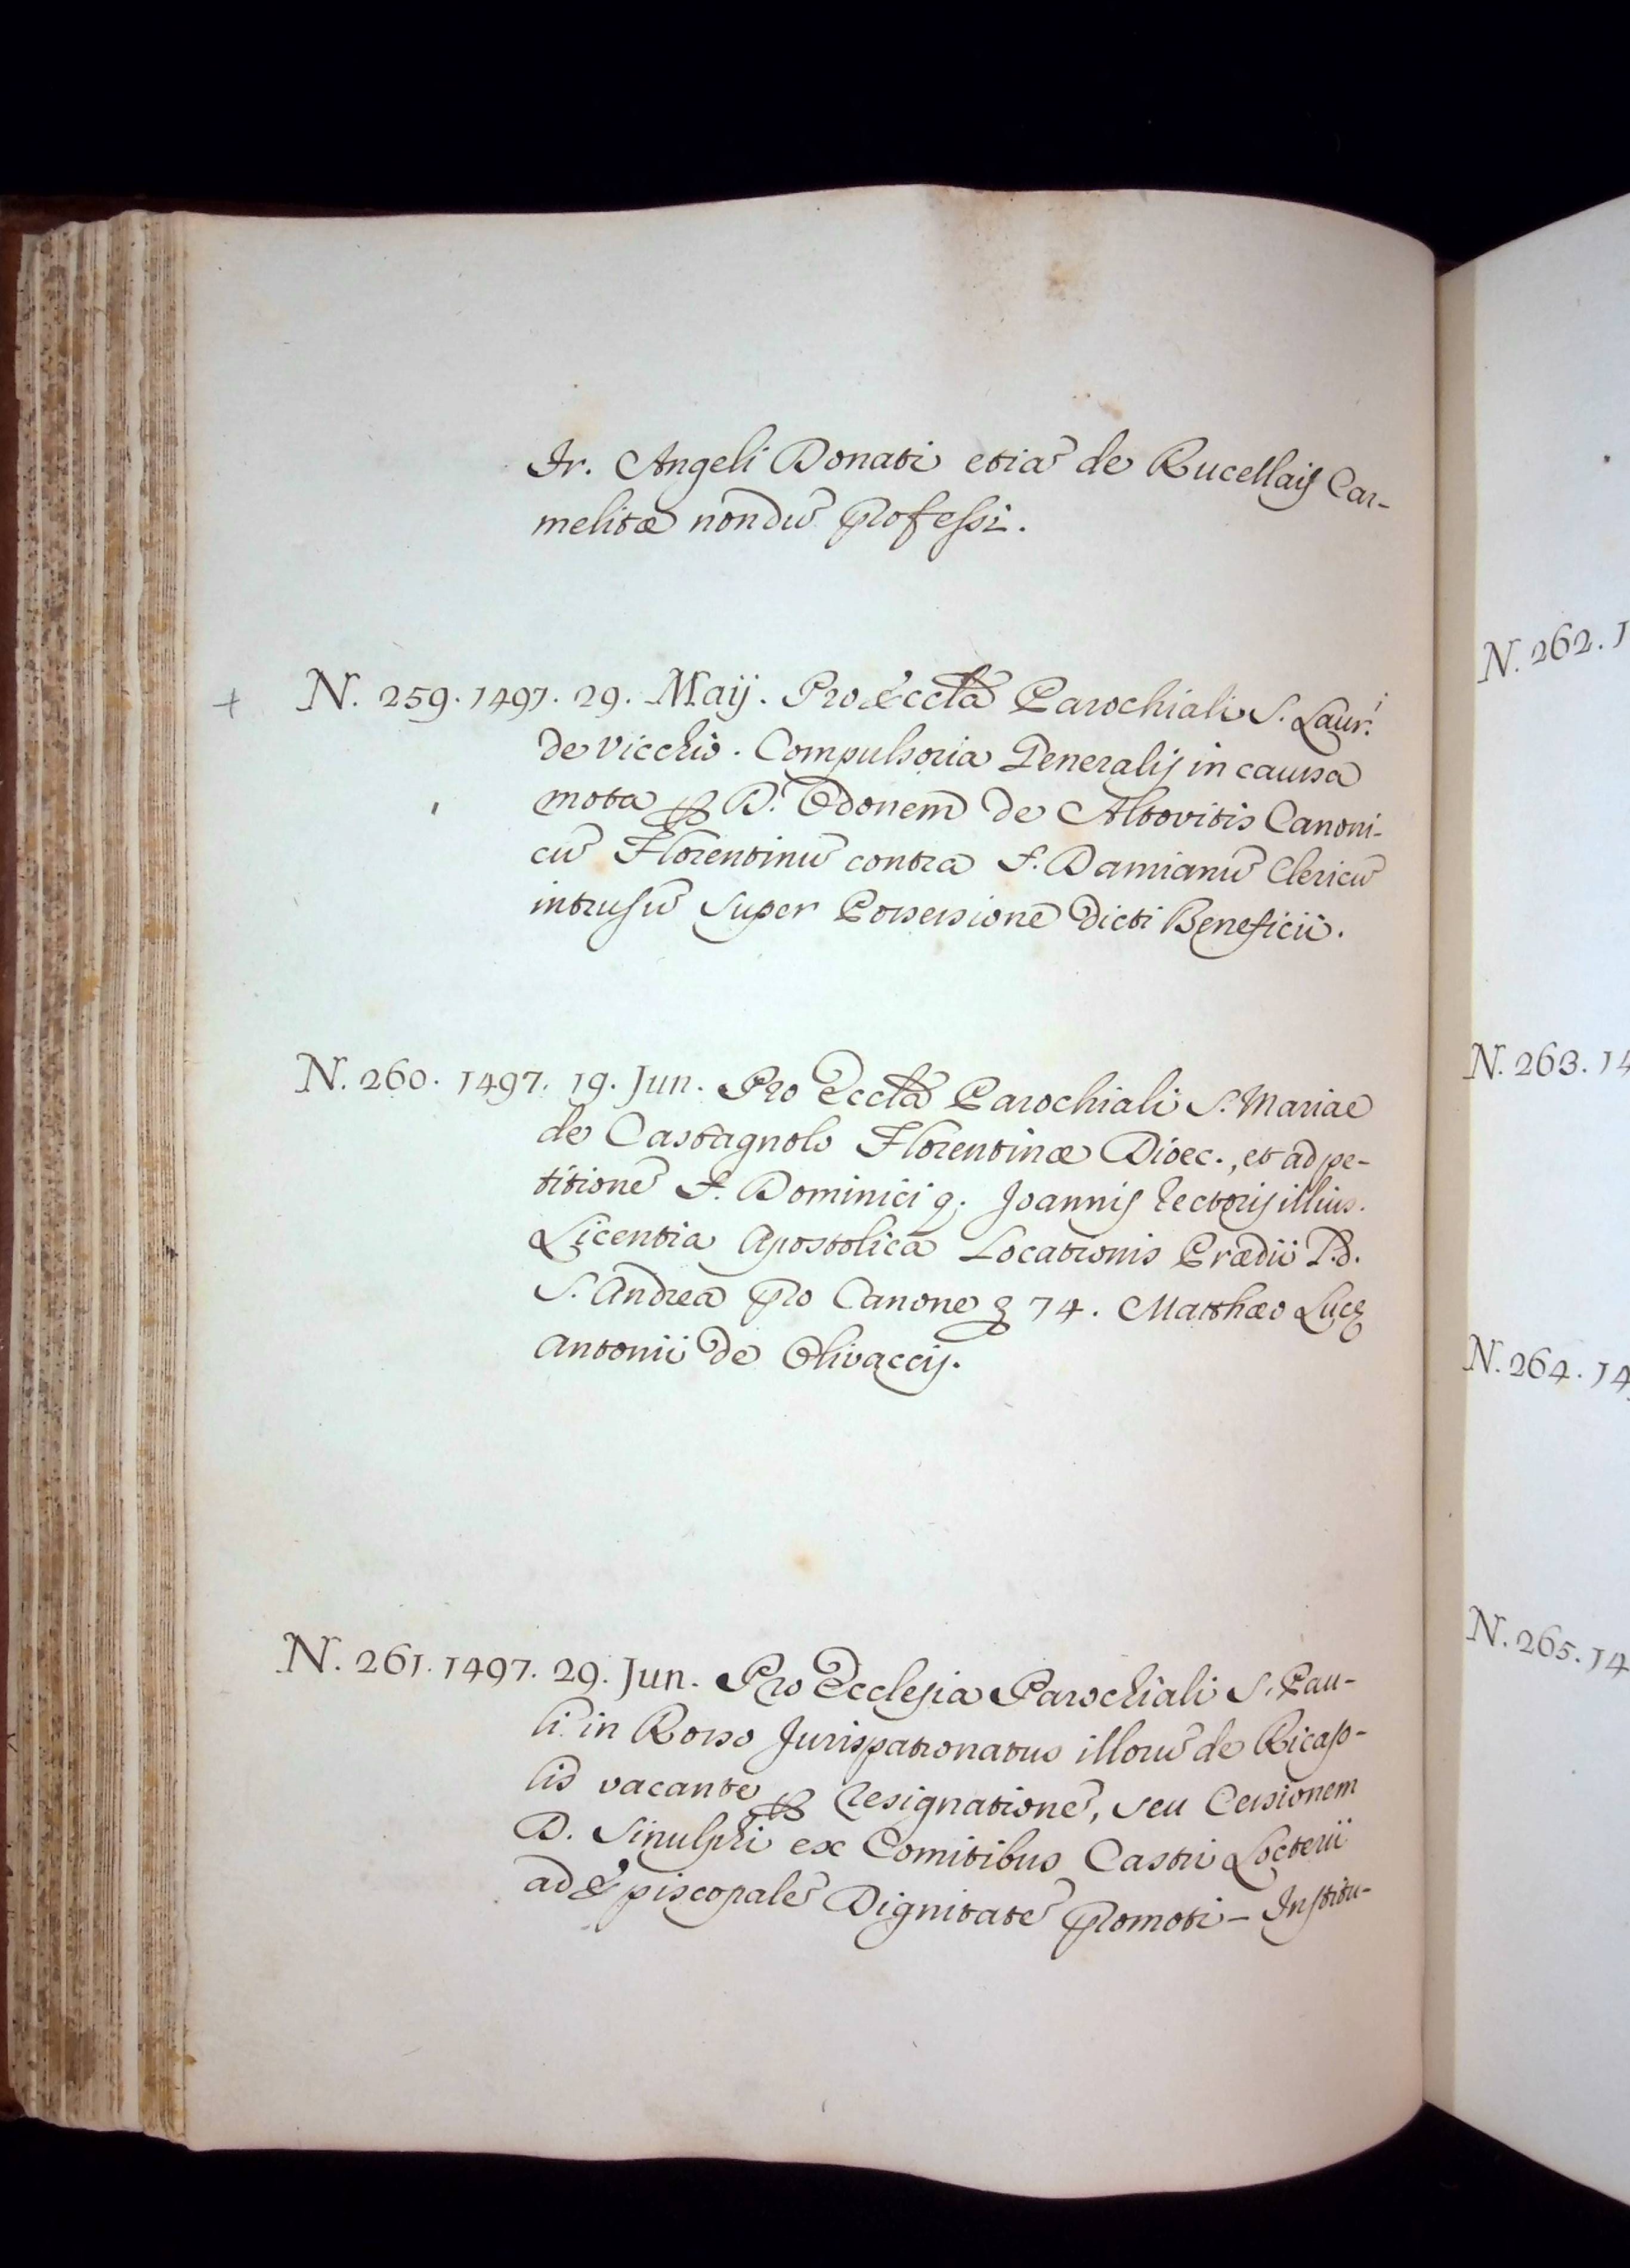 Fr. Angeli Donati etiā de Rucellaij Car-
melitæ nondū professi.
+ N. 259. 1497. 29. Maij. Pro Eccl̄a Parochiali S. Laur.ⁱ
de Vicchio. Compulsoria Generalis in causa
mota ꝑ D. Odonem de Altovitis Canoni-
cū Florentinū contra S. Damianū Clericū
intrusū super Possessionē Dicti Beneficii.
N. 260. 1497. 19. Jun. Pro Eccl̄a Parochiali S. Mariae
de Castagnolo Florentinæ Dioec., et ad pe-
titionē S. Dominici q. Joannis Rectoris illius.
Licentia Apostolica Locationis Prædii P.d.
S. Andrea pro Canone 74. Matthæo Lucę
Antonii de Olivaccij.
N. 261. 1497. 29. Jun. Pro Ecclesia Parochiali S. Pau-
li in Rosso Jurispatronatus illorū de Ricaso-
lis vacante ꝑ Resignationē, seu Cessionem
D. Sinulphi ex Comitibus Castri Locterii
ad Episcopalē Dignitatē promoti - Institu-
N. 262. 1
N. 263. 14
N. 264. 14
N. 265. 14